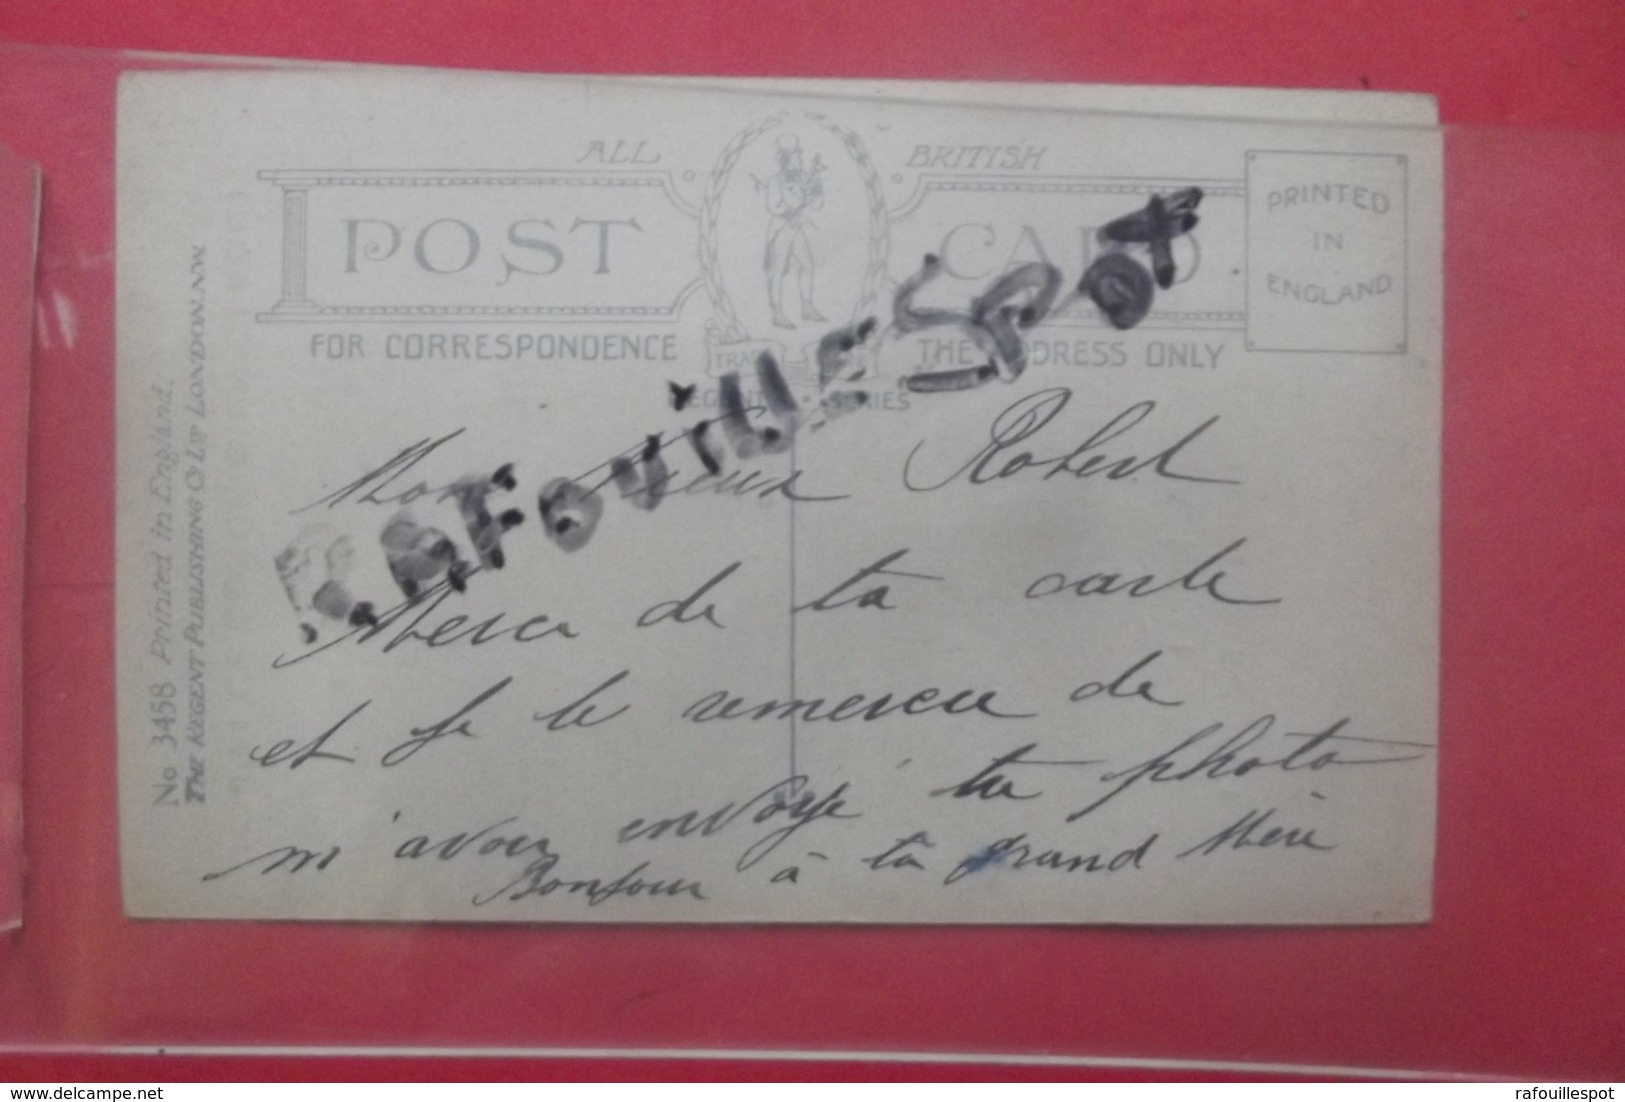 ALL BRITISH
POST CARD
PRINTED
IN
ENGLAND
FOR CORRESPONDENCE
THE ADDRESS ONLY
TRADE
REGENT SERIES
No 3458 Printed in England.
THE REGENT PUBLISHING Co LTD LONDON.NW
RAFOUILLESPOT
Mon vieux Robert
Merci de ta carte
et je te remercie de
m'avoir envoyé ta photo
Bonjour à ta grand Mère
www.delcampe.net
rafouillespot